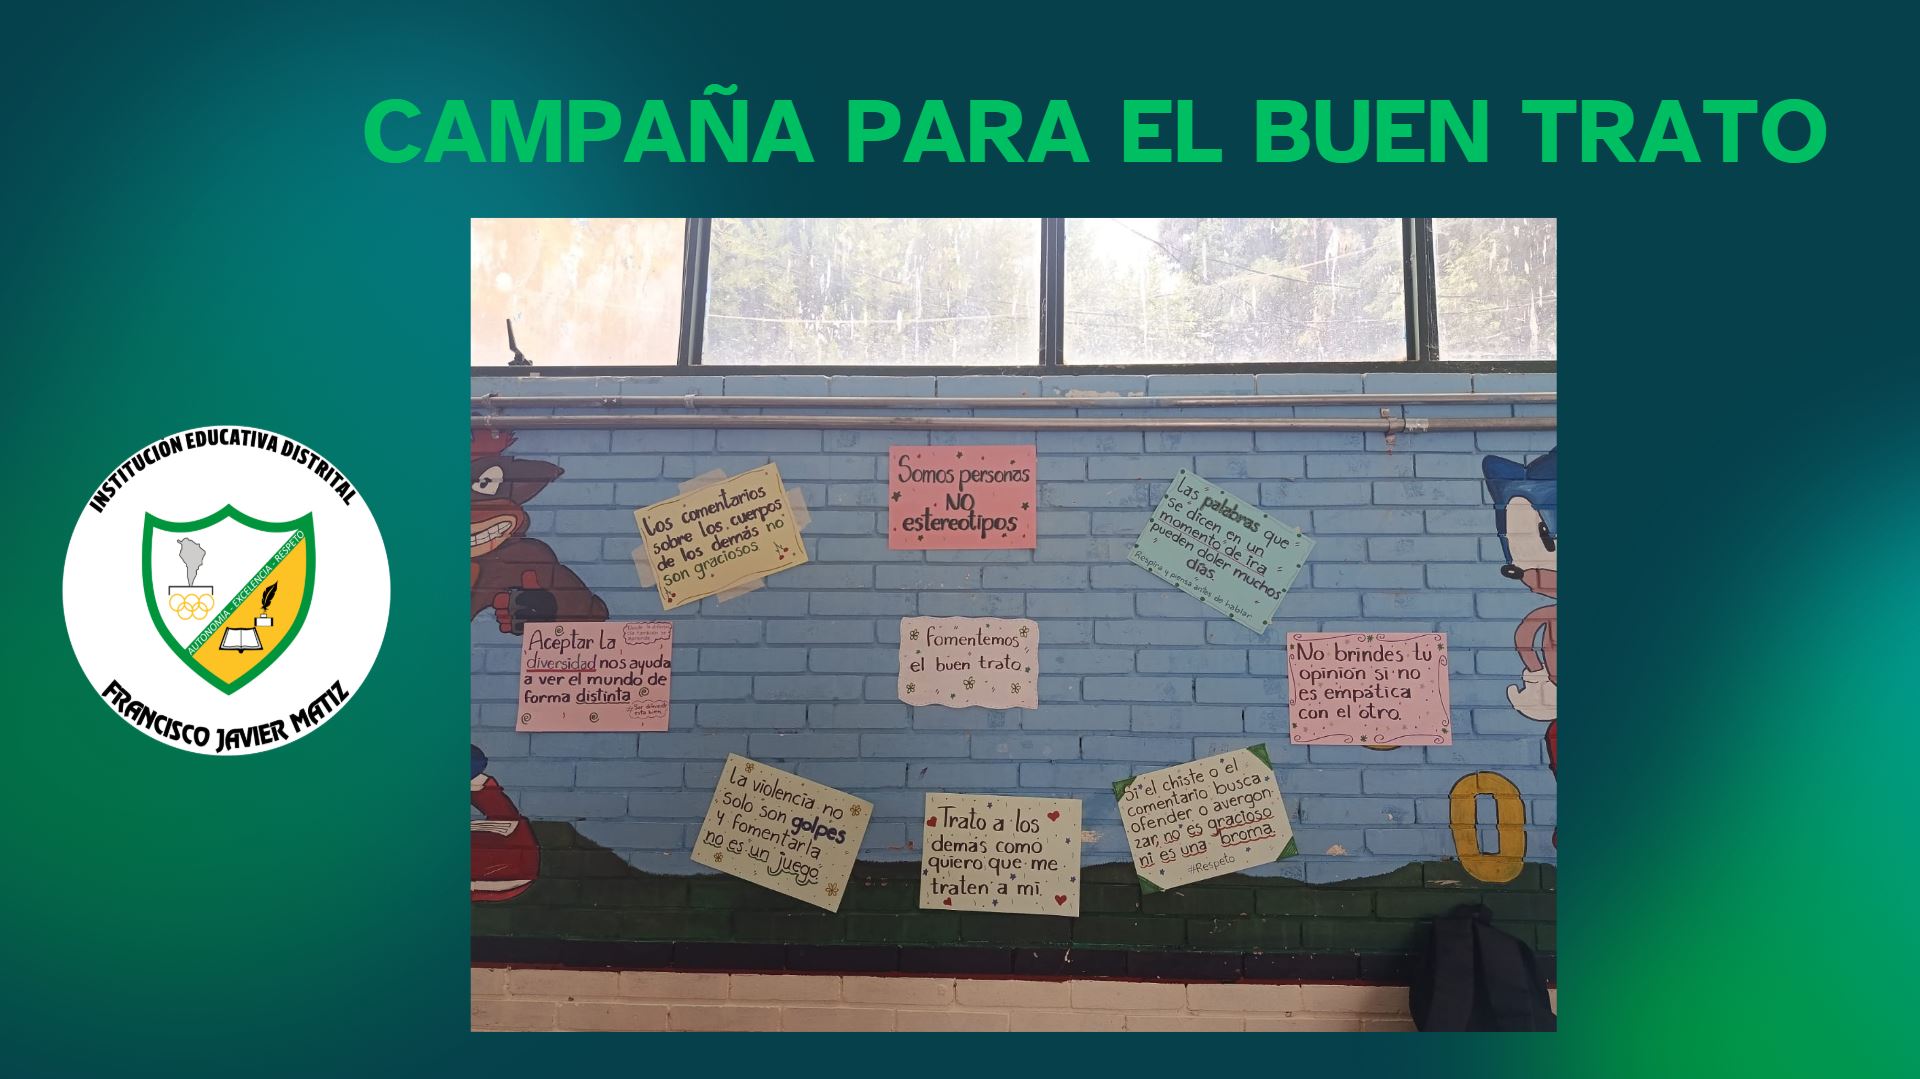 CAMPAÑA PARA EL BUEN TRATO
INSTITUCIÓN EDUCATIVA DISTRITAL
AUTONOMÍA - EXCELENCIA - RESPETO
FRANCISCO JAVIER MATIZ
Los comentarios
sobre los cuerpos
de los demás no
son graciosos
Somos personas
NO
estereotipos
Las palabras que
se dicen en un
momento de ira
pueden doler muchos
días.
Respira y piensa antes de hablar
Aceptar la
diversidad nos ayuda
a ver el mundo de
forma distinta
fomentemos
el buen trato
No brindes tu
opinión si no
es empática
con el otro.
La violencia no
solo son golpes
y fomentarla
no es un juego
Trato a los
demás como
quiero que me
traten a mi
Si el chiste o el
comentario busca
ofender o avergon-
zar, no es gracioso
ni es una broma
#Respeto